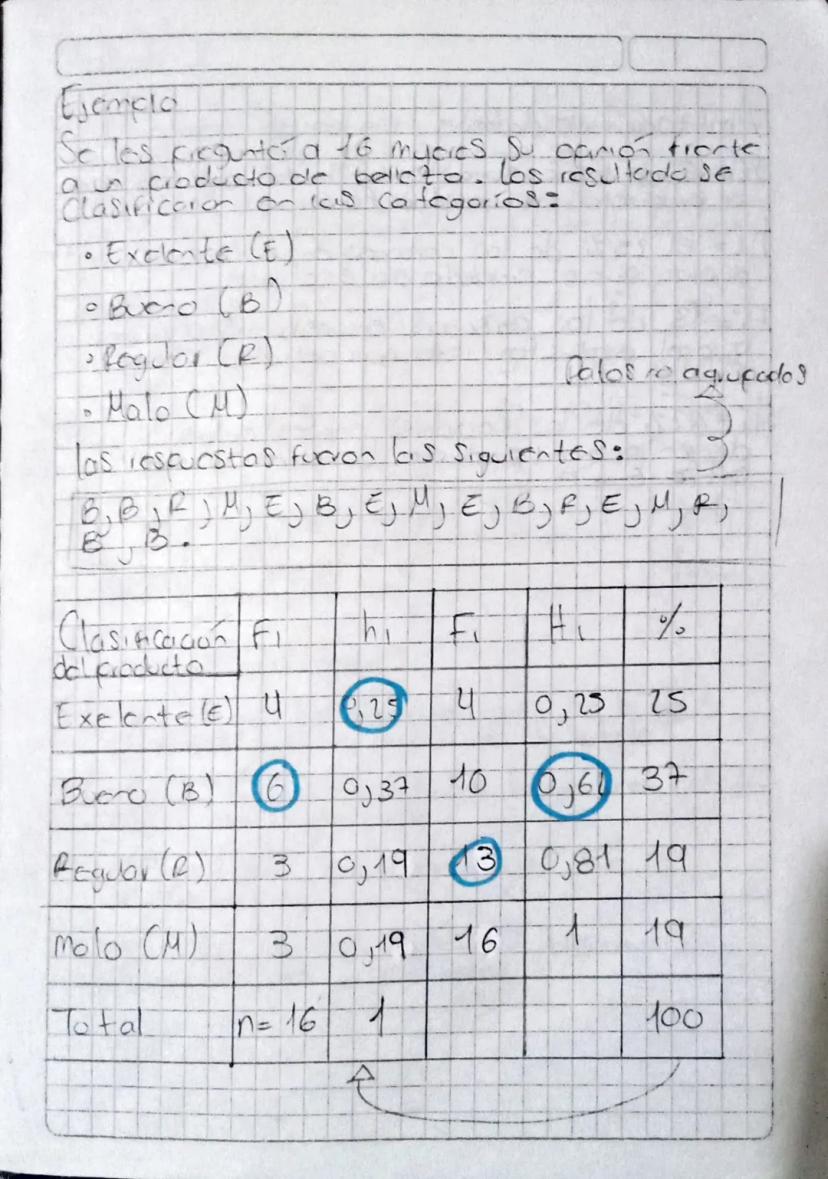 Ejemplo
Se les preguntó a 16 mujeres su opinión frente
a un producto de belleza. Los resultado se
Clasificaron en las categorías:
• Exelente (E)
• Bueno (B)
• Regular (R)
• Malo (M)
Datos no agrupados
las respuestas fueron las siguientes:
B, B, R, M, E, B, E, M, E, B, R, E, M, R,
B, B.
Clasificación del producto F₁ h₁ F₁ H₁ %
Exelente (E) 4 0,25 4 0,25 25
Bueno (B) 6 0,37 10 37
Regular (R) 3 0,19 13 0,81 19
Malo (M) 3 0,19 16 1 19
Total n= 16 1 100